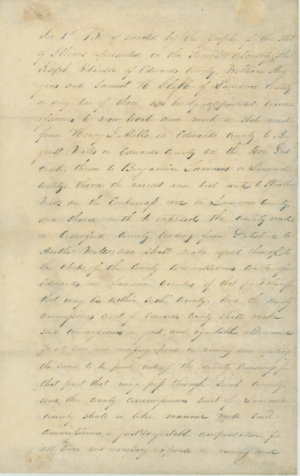 Sec 1st Be it enacted by the People of the State
of Illinois represented in the General Assembly That
Joseph of Edwards County, William
and Samuel H. of Lawrence County
or any two of them, are hereby appointed commis
sioners to view, locate and mark a state road
from Henry I. Mills in Edwards County to
Mills in Edwards County on the
creek, thence to Benjamin in Lawrence
County, thence the nearest and best route to
Mills on the Embarrass river in Lawrence County,
thence north to intersect the county road
in Crawford County leading from to
and shall make report thereof to
the clerks of the County Commissioners Courts of
Edwards and Lawrence Counties of that part thereof
that may be within each County. And the County
Commissioners Court of Edwards County shall make
said commissioners a just and equitable allowance
for all time and necessary expense in viewing and making
the same to be paid out of the County treasury for
that part that may pass through said County
And the County Commissioners Court of Lawrence
County shall in like manner make said
Commissioners a just & equitable compensation for
all time and necessary expense in viewing and